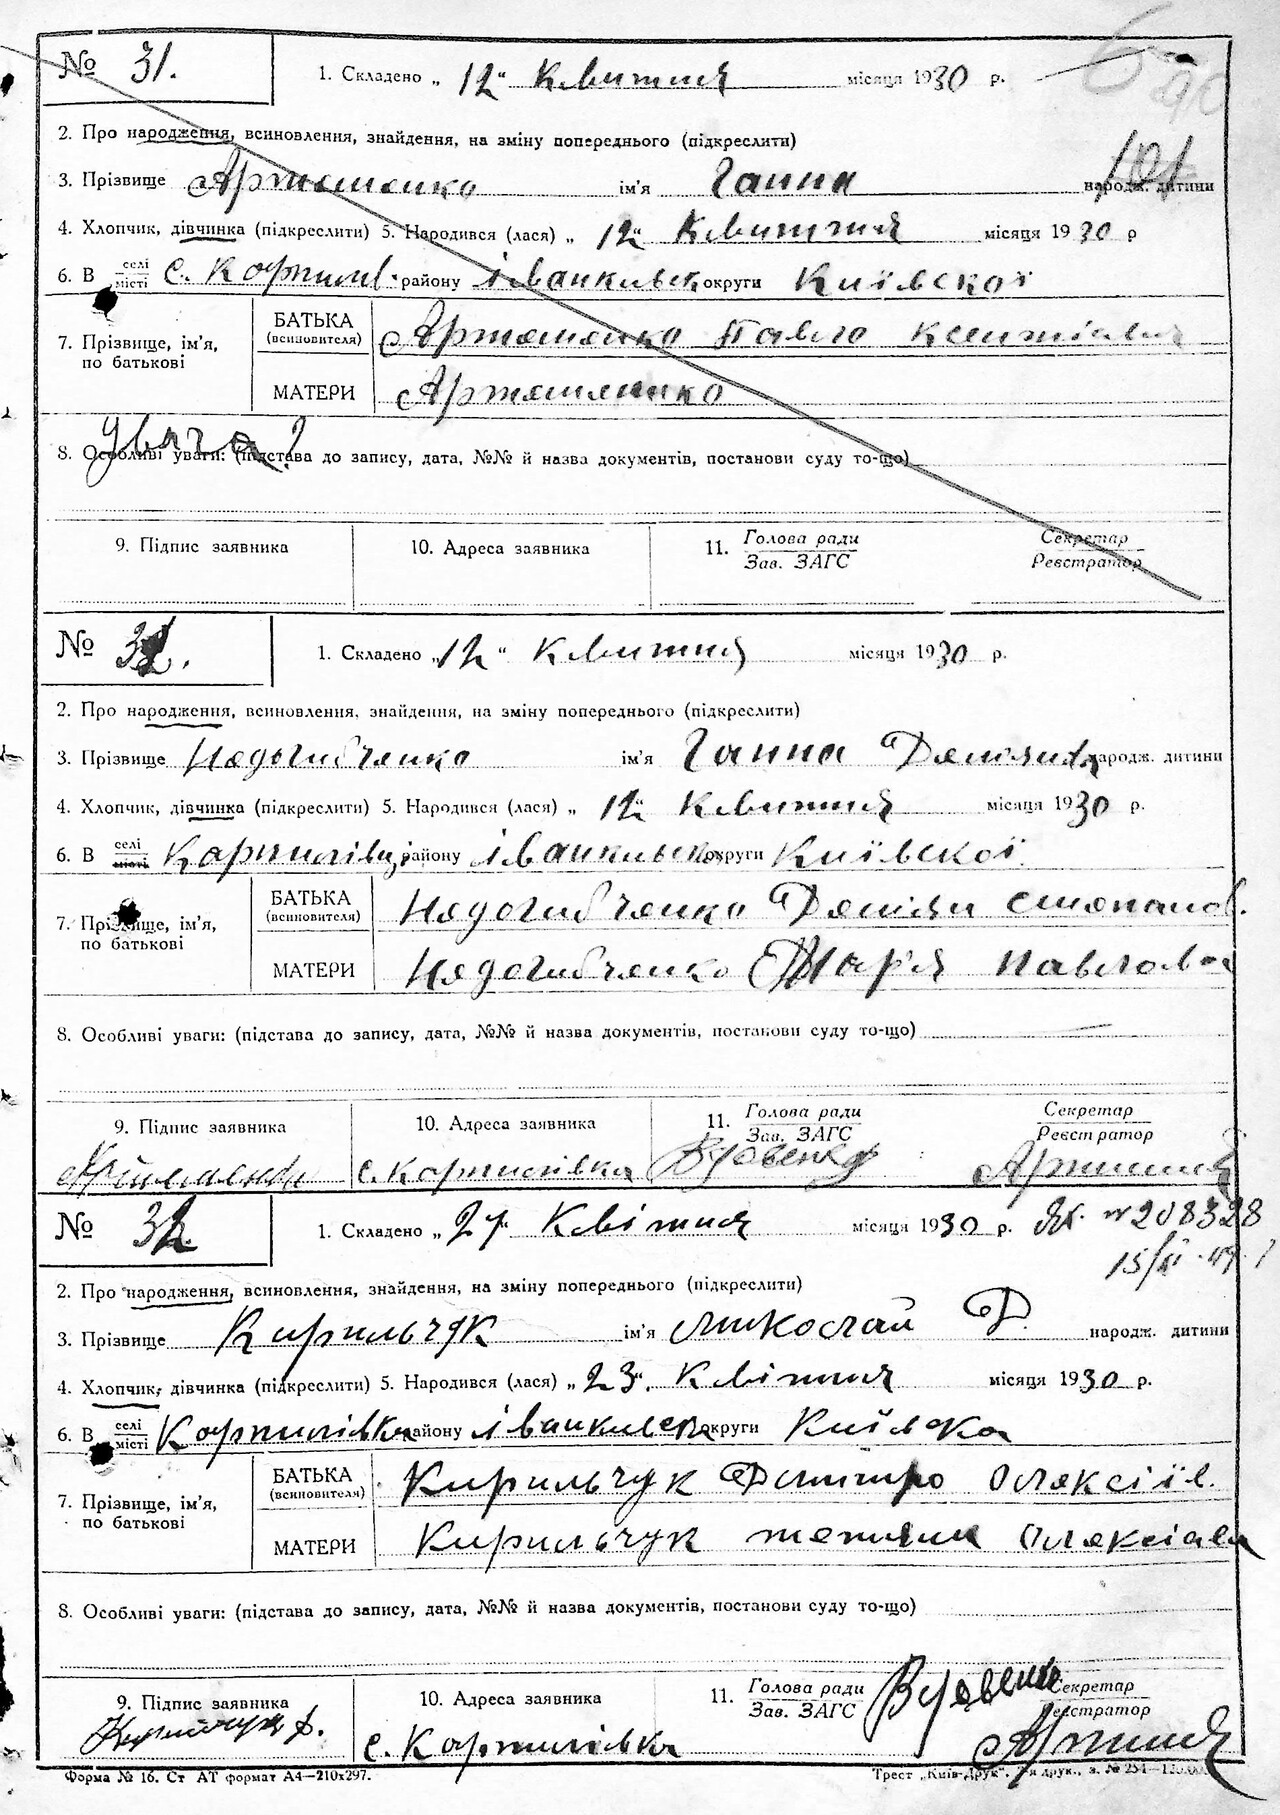 № 31. 1. Складено „12" Квитня місяця 1930 р.
2. Про народження, всиновлення, знайдення, на зміну попереднього (підкреслити)
101
3. Прізвище Артеменко ім'я Ганна народж. дитини
4. Хлопчик, дівчинка (підкреслити) 5. Народився (лася) „12" Квитня місяця 1930 р
6. В селі/місті с. Карпилів. району Іванківськ округи Київскої
7. Прізвище, ім'я, по батькові
БАТЬКА (всиновителя) Артеменко Павло
МАТЕРИ Артеменко
8. Особливі уваги: (підстава до запису, дата, №№ й назва документів, постанови суду то-що)
9. Підпис заявника 10. Адреса заявника 11. Голова ради Зав. ЗАГС Секретар Реєстратор
№ 31. 1. Складено „12" Квитня місяця 1930 р.
2. Про народження, всиновлення, знайдення, на зміну попереднього (підкреслити)
3. Прізвище Недогибченко ім'я Ганна народж. дитини
4. Хлопчик, дівчинка (підкреслити) 5. Народився (лася) „12" Квитня місяця 1930 р.
6. В селі/місті Карпилівці району Іванківськ округи Київскої
7. Прізвище, ім'я, по батькові
БАТЬКА (всиновителя) Недогибченко Демян Степанов.
МАТЕРИ Недогибченко Мар'я Павлова
8. Особливі уваги: (підстава до запису, дата, №№ й назва документів, постанови суду то-що)
9. Підпис заявника 10. Адреса заявника 11. Голова ради Зав. ЗАГС Секретар Реєстратор
с. Карпилівка
№ 32 1. Складено „27" Квітня місяця 1930 р. № 208328
2. Про народження, всиновлення, знайдення, на зміну попереднього (підкреслити)
3. Прізвище Кирильчук ім'я Миколай Д. народж. дитини
4. Хлопчик, дівчинка (підкреслити) 5. Народився (лася) „23". Квітня місяця 1930 р.
6. В селі/місті Карпилівка району Іванківськ округи Київска
7. Прізвище, ім'я, по батькові
БАТЬКА (всиновителя) Кирильчук Дмитро Олексіїв.
МАТЕРИ Кирильчук Олексіевн
8. Особливі уваги: (підстава до запису, дата, №№ й назва документів, постанови суду то-що)
9. Підпис заявника 10. Адреса заявника 11. Голова ради Зав. ЗАГС Секретар Реєстратор
с. Карпилівка
Форма № 16. Ст АТ формат А4—210x297. Трест „Київ-Друк".